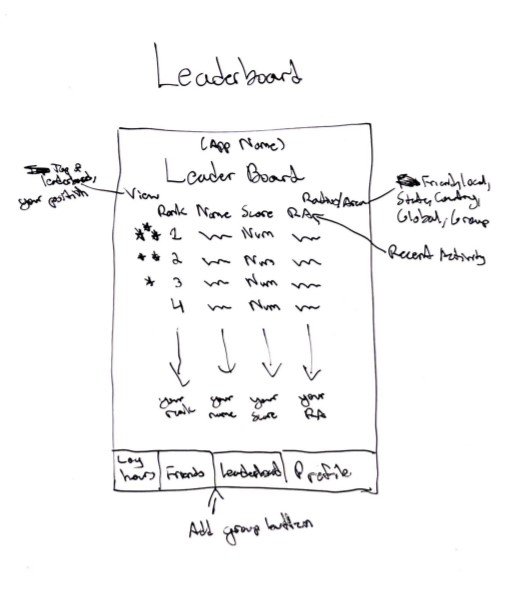 Leaderboard
(App Name)
Leader Board
Top of
leaderboard,
your position
View
Radius/Area
Friends, local,
State, Country,
Global, Group
Rank Name Score RA
Recent Activity
*** 1 Num
** 2 Num
* 3 Num
4 Num
your rank
your name
your score
your RA
Log hours
Friends
Leaderboard
Profile
Add group button